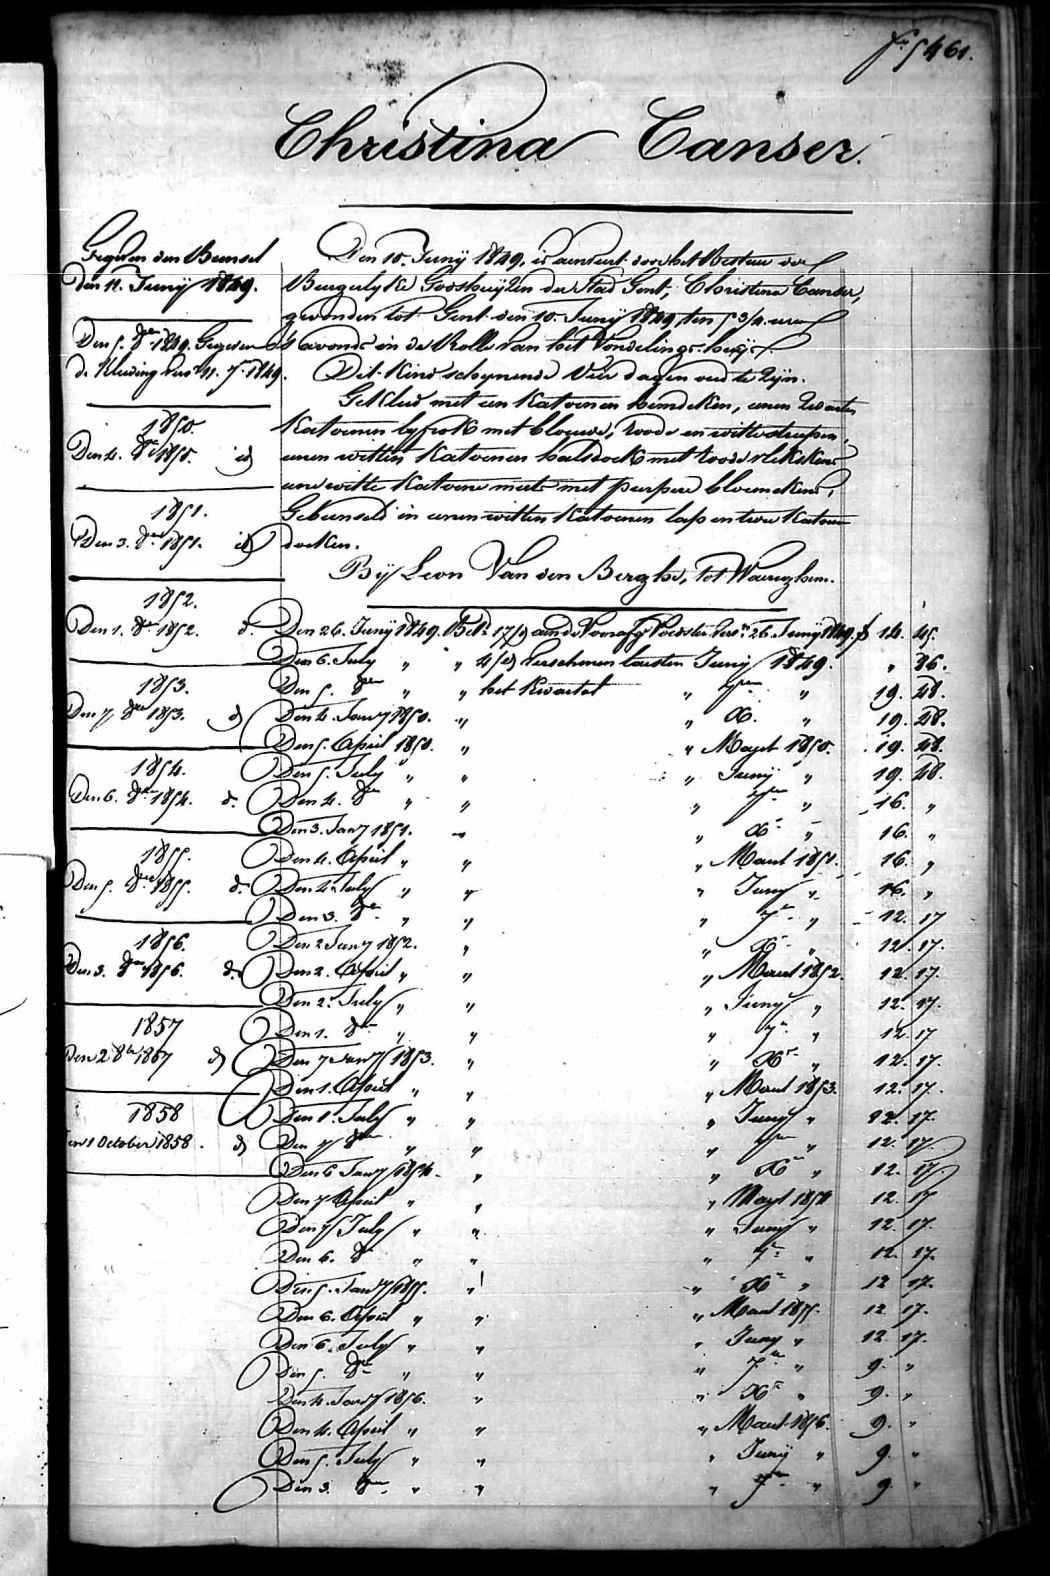 461.
Christina Canser.
Gegeven den Bunsel
den 11. Junij 1849.
Den 5. 8bre 1849. Gegeven
de Kleeding 1849.
1850.
Den 4. 8bre 1850. id
1851.
Den 3. 8bre 1851. id
1852.
Den 1. 8bre 1852. d.
1853.
Den 7 8bre 1853. d
1854.
Den 6. 8bre 1854. d.
1855.
Den 5. 8bre 1855. d.
1856.
Den 3. 8bre 1856. d.
1857
Den 2 8bre 1857 d
1858
Den 1 October 1858. d
Den 10. Junij 1849, is aenveert door het Bestuer der
Burgerlyke Godshuyzen der Stad Gent, Christina Canser,
gevonden tot Gent den 10. Junij 1849, ten 9 3/4 uren
's avonds in de Rolle van het Vondelings-huijs.
Dit Kind schynende vier dagen oud te zijn.
Gekleed met een Katoenen hemdeken, eenen zwarten
Katoenen lyfrok met blouwe, roode en witte streepen,
eenen witten Katoenen halsdoek met roode vlekskens
eene witte Katoene muts met purpere bloemekens,
Gebunseld in eenen witten Katoenen lap en twee Katoene
doeken.
Bij Leon Van den Berghe, tot Waereghem.
Den 26. Junij 1849. Bet. 17/ aan de Voorafg Voedster vers. 26 Junij 1849. f 14. 45.
Den 6. July " " 4/ verschenen lausten Junij 1849. " 86.
Den 5. 8bre " " het Kwartal " 7bre " 19. 48.
Den 4. Janry 1850. " " Xbre " 19. 48.
Den 5. April 1850. " " Maert 1850. 19. 48.
Den 5. July " " " Junij " 19. 48.
Den 4. 8bre " " " 7bre " 16. "
Den 3. Janry 1851. " " Xbre " 16. "
Den 4. April " " " Maert 1851. 16. "
Den 4. July " " " Juny " 16. "
Den 3. 8bre " " " 7bre " 12. 17
Den 2 Janry 1852. " " Xbre " 12. 17.
Den 2. April " " " Maert 1852. 12. 17.
Den 2. July " " " Juny " 12. 17.
Den 1. 8bre " " " 7bre " 12. 17
Den 7 Janry 1853. " " Xbre " 12. 17.
Den 1. April " " " Maert 1853. 12. 17.
Den 1. July " " " Juny " 12. 17.
Den 7 8bre " " " 7bre " 12. 17.
Den 6 Janry 1854. " " Xbre " 12. 17.
Den 7 April " " " Maert 1854 12. 17
Den 7 July " " " Juny " 12. 17.
Den 6. 8bre " " " 7bre " 12. 17.
Den 5. Janry 1855. " " Xbre " 12 17.
Den 6. April " " " Maert 1855. 12 17.
Den 6. July " " " Juny " 12 17.
Den 5. 8bre " " " 7bre " 9. "
Den 4. Janry 1856. " " Xbre " 9. "
Den 4. April " " " Maert 1856. 9. "
Den 5. July " " " Junij " 9. "
Den 3. 8bre " " " 7bre " 9 "